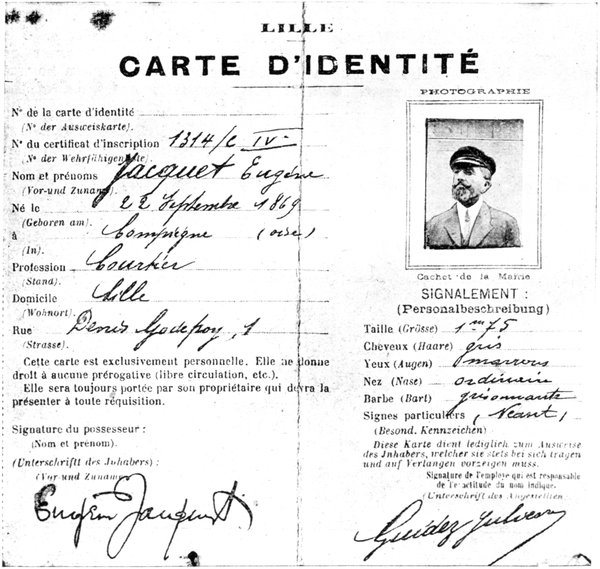 LILLE
CARTE D'IDENTITÉ
N° de la carte d'identité
(N° der Ausweiskarte).
N° du certificat d'inscription 1314/C IV
(N° der Wehrfähigenliste)
Nom et prénoms Jacquet Eugène
(Vor-und Zuname)
Né le 22 Septembre 1869
(Geboren am).
à Compiègne (Oise)
(In).
Profession Courtier
(Stand).
Domicile Lille
(Wohnort).
Rue Denis Godefroy, 1
(Strasse).
Cette carte est exclusivement personnelle. Elle ne donne
droit à aucune prérogative (libre circulation, etc.).
Elle sera toujours portée par son propriétaire qui devra la
présenter à toute réquisition.
Signature du possesseur :
(Nom et prénom).
(Unterschriftl des Juhabers):
(Vor und Zuname)
Eugène Jacquet
PHOTOGRAPHIE
Cachet de la Mairie
SIGNALEMENT :
(Personalbeschreibung)
Taille (Grösse) 1m75
Cheveux (Haare) gris
Yeux (Augen) marrons
Nez (Nase) ordinaire
Barbe (Bart) grisonnante
Signes particuliers (Néant)
(Besond. Kennzeichen)
Diese Karte dient lediglich zum Ausweise
des Inhabers, welcher sie stets bei sich tragen
und auf Verlangen vorzeigen muss.
Signature de l'employé qui est responsable
de l'exactitude du nom indique.
(Unterschrift des Angestellten
Guidez